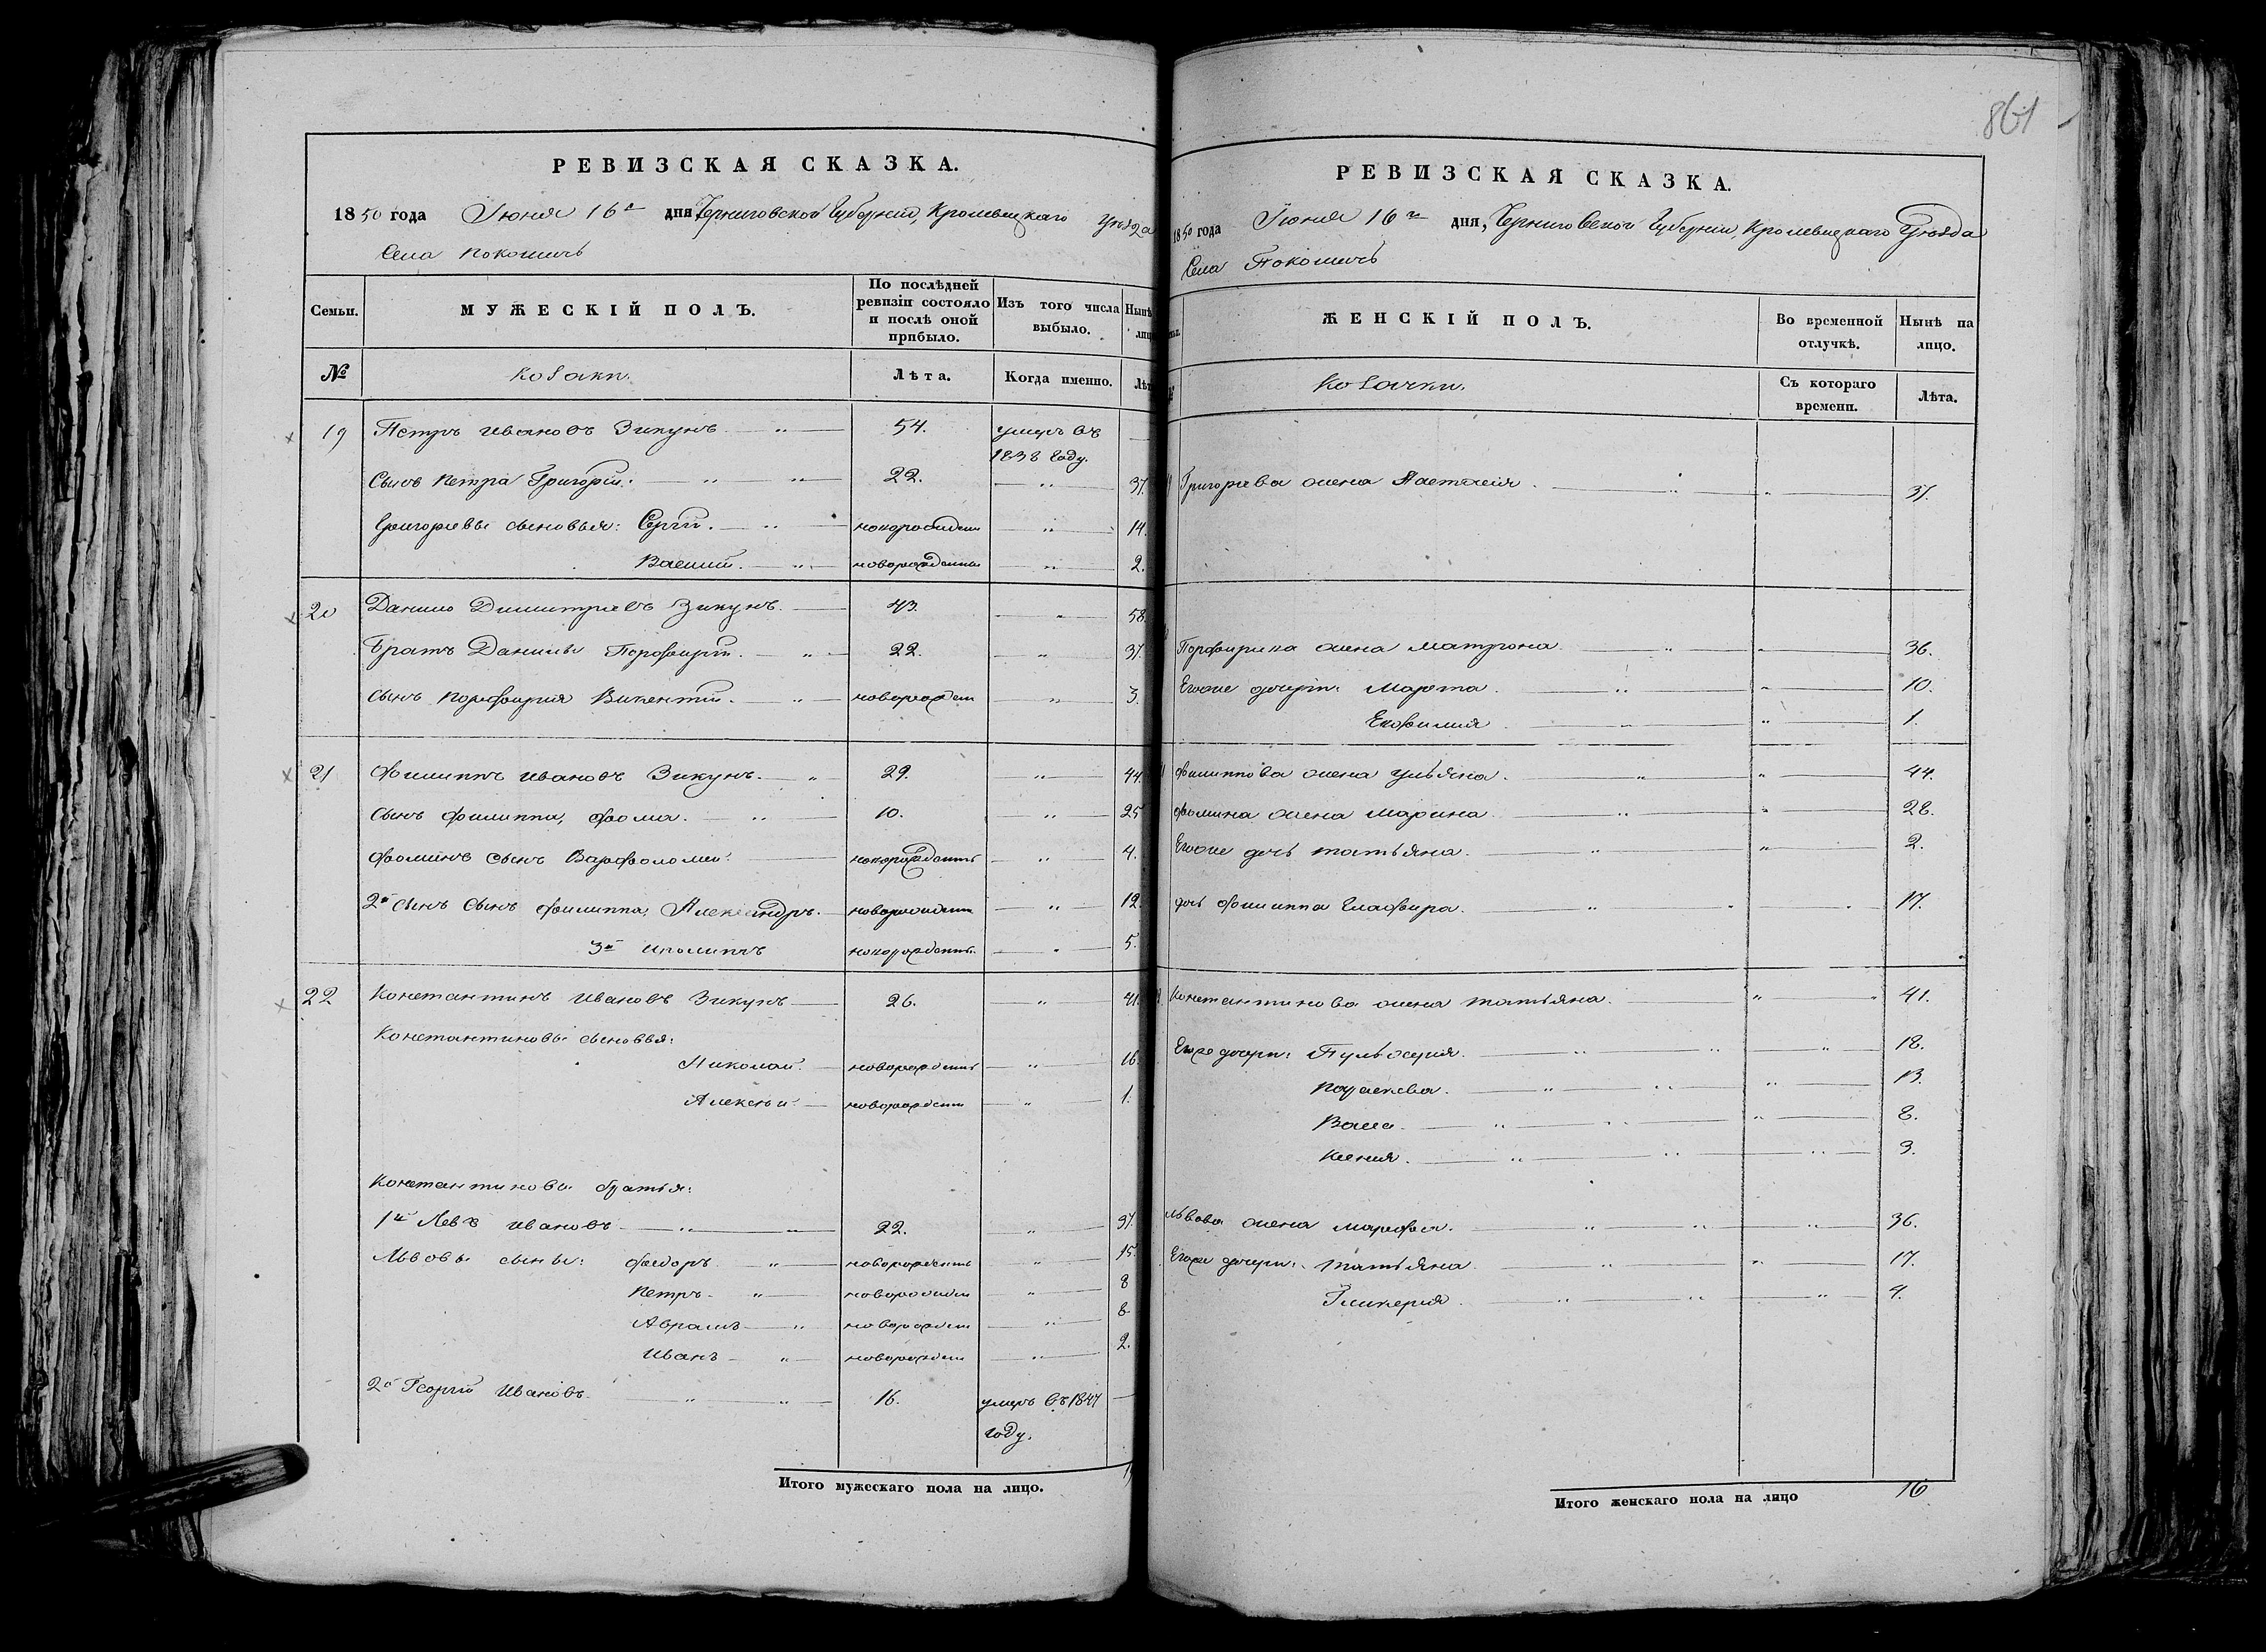 861
РЕВИЗСКАЯ СКАЗКА.
1850 года Июня 16го дня Черниговской Губерніи, Кролевецкаго Уезда
Села Покошичъ
Семьи. МУЖЕСКІЙ ПОЛЪ. По послѣдней ревизіи состояло и послѣ оной прибыло. Изъ того числа выбыло. Нынѣ
№ Козаки. Лѣта. Когда именно.
19 Петръ Ивановъ Зикунъ 54. умеръ въ 1838 году.
Сынъ Петра Григорій. 22. 37.
Григорьевы сыновья: Сергій. новорожден 14.
Василий. новорожденный 2.
20 Данило Димитриевъ Зикунъ. 43. 58.
Братъ Данилы Порфирій. 22. 37.
Сынъ Порфирия Викентій. новорожден 3.
21 Филиппъ Ивановъ Зикунъ. 29. 44.
Сынъ Филиппа, Фома. 10. 25
Фоминъ сынъ Варфоломей. новорожденный 4.
2й сынъ сынъ Филиппа, Александръ. новорожден 12.
3й Иполитъ новорожденный. 5.
22 Константинъ Ивановъ Зикунъ 26. 41.
Константиновы сыновья:
Николай. новорожденный 16.
Алексей. новорожден 1.
Константиновы братья:
1й Левъ Ивановъ 22. 37.
Львовы сыны: Федоръ. новорожденный 15.
Петръ. новорожден 8
Аврамъ новорожден 8.
Иванъ новорожден 2.
2й Георгій Ивановъ. 16. умеръ въ 1847 году.
Итого мужескаго пола на лицо.
РЕВИЗСКАЯ СКАЗКА.
1850 года Июня 16го дня, Черниговской Губерніи, Кролевецкаго Уезда
Села Покошичъ
ЖЕНСКІЙ ПОЛЪ. Во временной отлучкѣ. Нынѣ на лицо.
Козачки. Съ котораго времени. Лѣта.
Григорьева жена Настасия. 37.
Порфириева жена Матрона 36.
Егоже дочери: Марфа. 10.
Евфимия 1.
Филиппова жена Ульяна. 44.
Фомина жена Марина 28.
Егоже дочь Татьяна. 2.
дочь Филиппа Глафира. 17.
Константинова жена Татьяна. 41.
Егоже дочери: Пульхерия. 18.
Параскева. 13.
Васса. 8.
Ксения. 3.
Львова жена Марфа. 36.
Егоже дочери: Татьяна. 17.
Гликерия. 4.
Итого женскаго пола на лицо 16